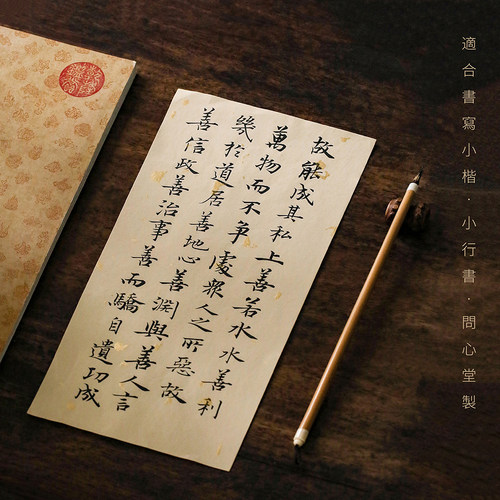 適合書寫小楷·小行書·問心堂製
故能成其私上善若水水善利
萬物而不爭處眾人之所惡故
幾於道居善地心善淵與善人言
善信政善治事善而驕自遺功成